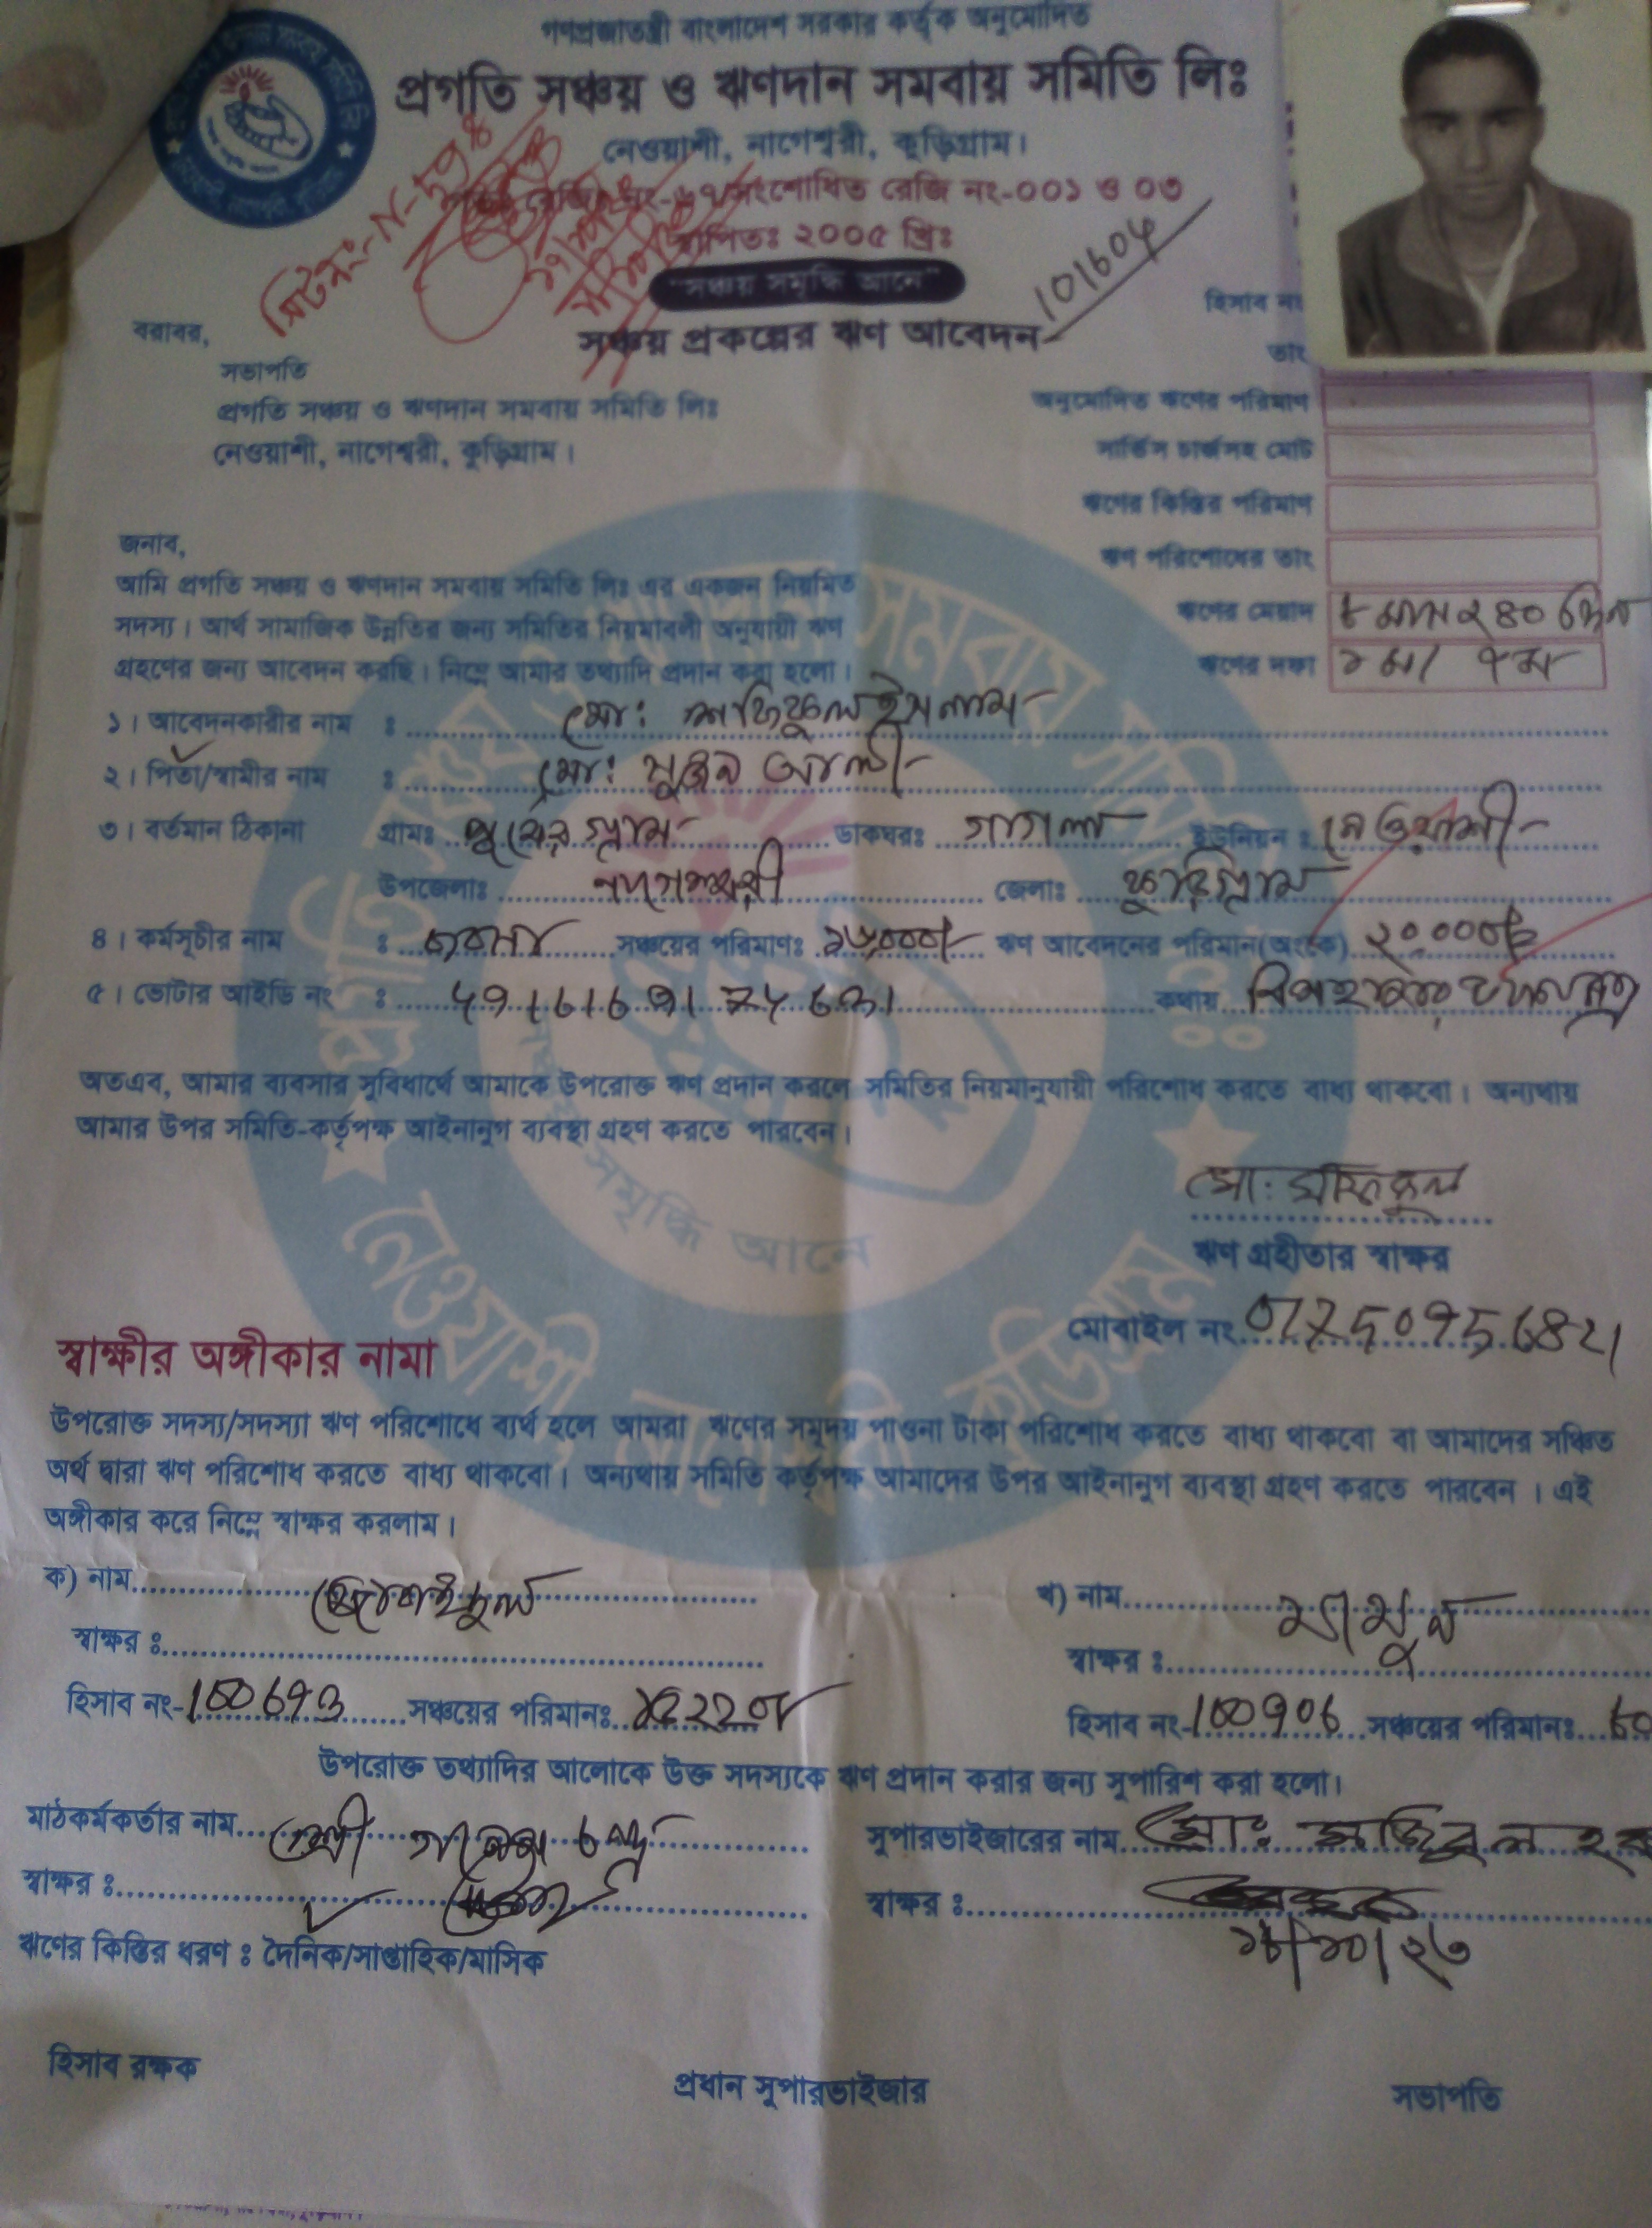 গণপ্রজাতন্ত্রী বাংলাদেশ সরকার কর্তৃক অনুমোদিত
প্রগতি সঞ্চয় ও ঋণদান সমবায় সমিতি লিঃ
নেওয়াশী, নাগেশ্বরী, কুড়িগ্রাম।
রেজিঃ নং-৬৭/সংশোধিত রেজি নং-০০১ ও ০৩
স্থাপিতঃ ২০০৫ খ্রিঃ
"সঞ্চয় সমৃদ্ধি আনে"
সঞ্চয় প্রকল্পের ঋণ আবেদন
হিসাব নং
তাং
বরাবর,
সভাপতি
প্রগতি সঞ্চয় ও ঋণদান সমবায় সমিতি লিঃ
নেওয়াশী, নাগেশ্বরী, কুড়িগ্রাম।
অনুমোদিত ঋণের পরিমাণ
সার্ভিস চার্জসহ মোট
ঋণের কিস্তির পরিমাণ
ঋণ পরিশোধের তাং
ঋণের মেয়াদ ৮ মাস ২৪০ দিন
ঋণের দফা
জনাব,
আমি প্রগতি সঞ্চয় ও ঋণদান সমবায় সমিতি লিঃ এর একজন নিয়মিত
সদস্য। আর্থ সামাজিক উন্নতির জন্য সমিতির নিয়মাবলী অনুযায়ী ঋণ
গ্রহণের জন্য আবেদন করছি। নিম্নে আমার তথ্যাদি প্রদান করা হলো।
১। আবেদনকারীর নাম : মো: শফিকুল ইসলাম
২। পিতা/স্বামীর নাম : মো: আলী
৩। বর্তমান ঠিকানা গ্রামঃ ডাকঘরঃ গাগলা ইউনিয়ন : নেওয়াশী
উপজেলাঃ নাগেশ্বরী জেলাঃ কুড়িগ্রাম
৪। কর্মসূচীর নাম : সঞ্চয়ের পরিমাণঃ ঋণ আবেদনের পরিমান(অংকে) ২০,০০০/=
৫। ভোটার আইডি নং : কথায়
অতএব, আমার ব্যবসার সুবিধার্থে আমাকে উপরোক্ত ঋণ প্রদান করলে সমিতির নিয়মানুযায়ী পরিশোধ করতে বাধ্য থাকবো। অন্যথায়
আমার উপর সমিতি-কর্তৃপক্ষ আইনানুগ ব্যবস্থা গ্রহণ করতে পারবেন।
মো: শফিকুল
ঋণ গ্রহীতার স্বাক্ষর
মোবাইল নং
স্বাক্ষীর অঙ্গীকার নামা
উপরোক্ত সদস্য/সদস্যা ঋণ পরিশোধে ব্যর্থ হলে আমরা ঋণের সমুদয় পাওনা টাকা পরিশোধ করতে বাধ্য থাকবো বা আমাদের সঞ্চিত
অর্থ দ্বারা ঋণ পরিশোধ করতে বাধ্য থাকবো। অন্যথায় সমিতি কর্তৃপক্ষ আমাদের উপর আইনানুগ ব্যবস্থা গ্রহণ করতে পারবেন । এই
অঙ্গীকার করে নিম্নে স্বাক্ষর করলাম।
ক) নাম
খ) নাম মামুন
স্বাক্ষর :
স্বাক্ষর :
হিসাব নং- সঞ্চয়ের পরিমানঃ
হিসাব নং- সঞ্চয়ের পরিমানঃ
উপরোক্ত তথ্যাদির আলোকে উক্ত সদস্যকে ঋণ প্রদান করার জন্য সুপারিশ করা হলো।
মাঠকর্মকর্তার নাম শ্রী চন্দ্র
সুপারভাইজারের নাম মো:
স্বাক্ষর :
স্বাক্ষর :
ঋণের কিস্তির ধরণ : দৈনিক/সাপ্তাহিক/মাসিক
হিসাব রক্ষক
প্রধান সুপারভাইজার
সভাপতি